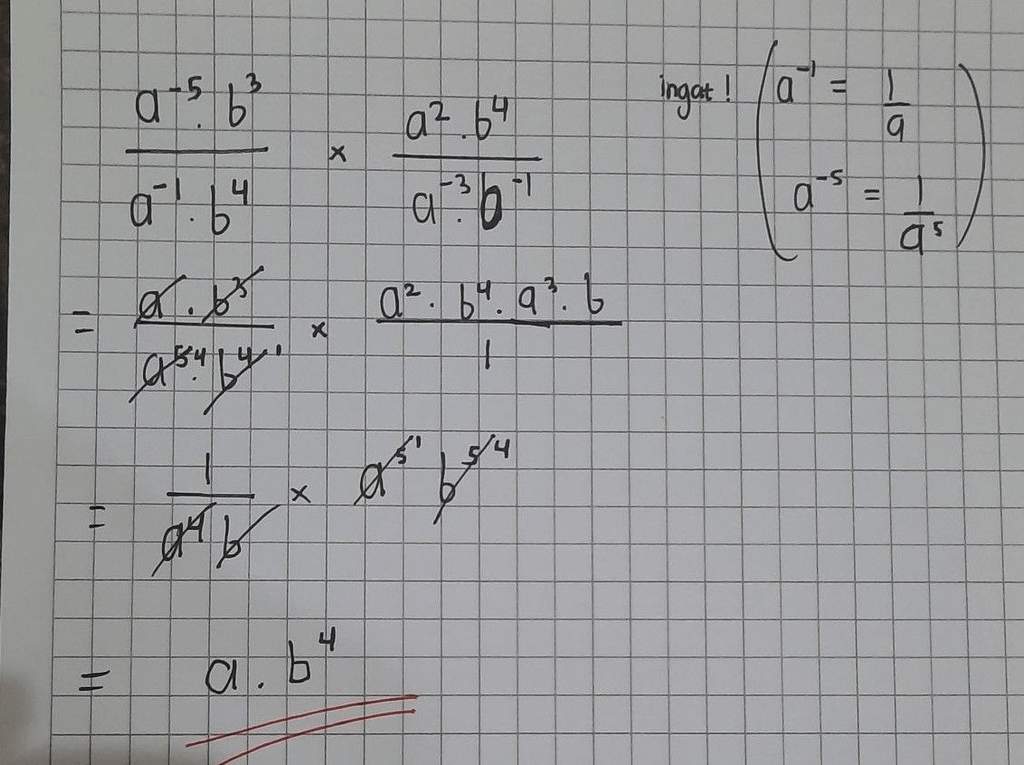 a⁻⁵ · b³ / a⁻¹ · b⁴ × a² · b⁴ / a⁻³ · b⁻¹
ingat ! ( a⁻¹ = 1/a
a⁻⁵ = 1/a⁵ )
= a · b³ / a⁵ ⁴ · b⁴ ¹ × a² · b⁴ · a³ · b / 1
= 1 / a⁴ b × a⁵ ¹ b⁵ ⁴
= a . b⁴